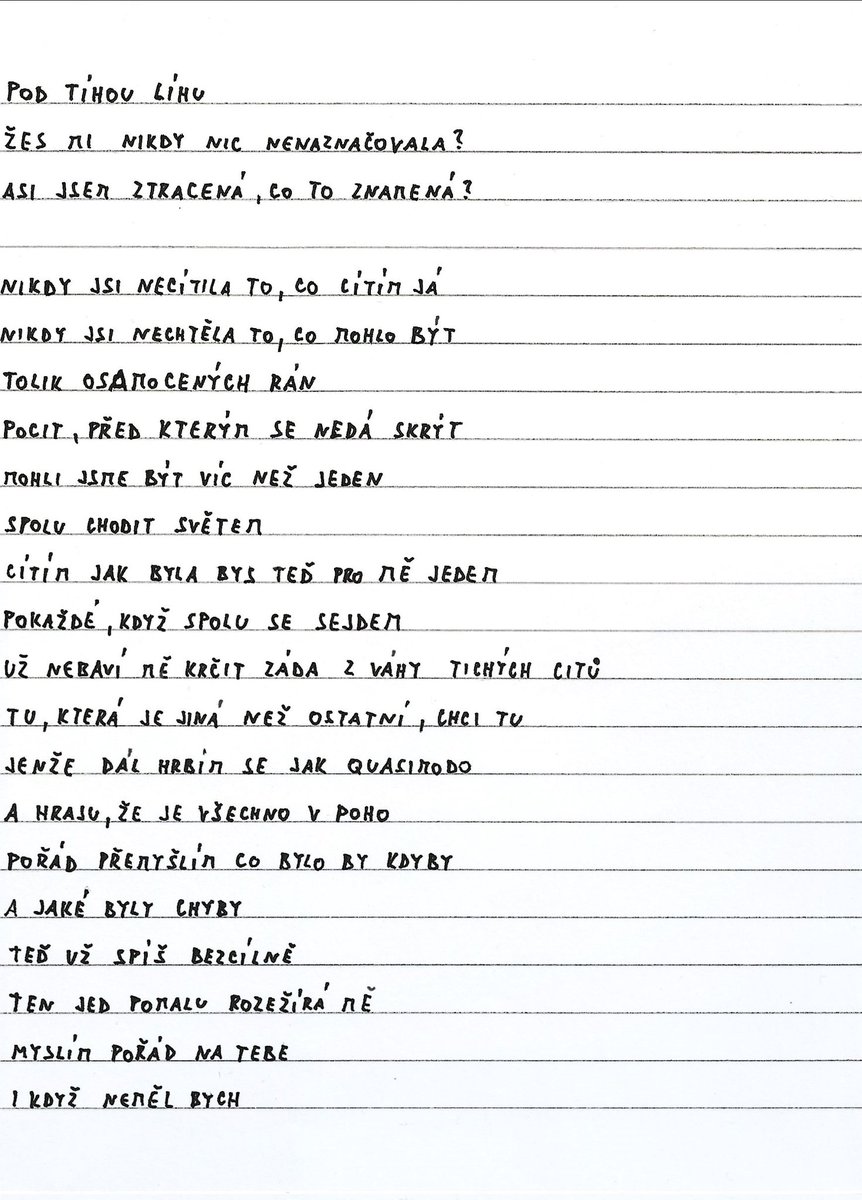 POD TÍHOU LÍHU
ŽES MI NIKDY NIC NENAZNAČOVALA?
ASI JSEM ZTRACENÁ, CO TO ZNAMENÁ?

NIKDY JSI NECÍTILA TO, CO CÍTÍM JÁ
NIKDY JSI NECHTĚLA TO, CO MOHLO BÝT
TOLIK OSAMOCENÝCH RÁN
POCIT, PŘED KTERÝM SE NEDÁ SKRÝT
MOHLI JSME BÝT VÍC NEŽ JEDEN
SPOLU CHODIT SVĚTEM
CÍTÍM JAK BYLA BYS TEĎ PRO MĚ JEDEM
POKAŽDÉ, KDYŽ SPOLU SE SEJDEM
UŽ NEBAVÍ MĚ KRČIT ZÁDA Z VÁHY TICHÝCH CITŮ
TU, KTERÁ JE JINÁ NEŽ OSTATNÍ, CHCI TU
JENŽE DÁL HRBÍM SE JAK QUASIMODO
A HRAJU, ŽE JE VŠECHNO V POHO
POŘÁD PŘEMÝŠLÍM CO BYLO BY KDYBY
A JAKÉ BYLY CHYBY
TEĎ UŽ SPÍŠ BEZCÍLNĚ
TEN JED POMALU ROZEŽÍRÁ MĚ
MYSLÍM POŘÁD NA TEBE
I KDYŽ NEMĚL BYCH